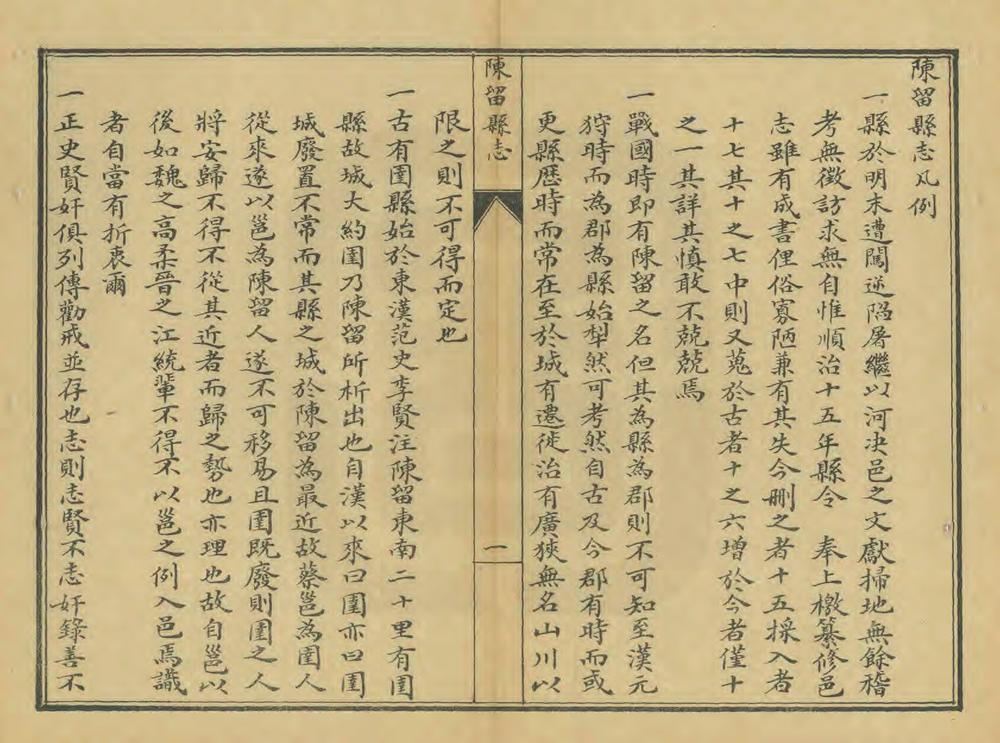 陳留縣志凡例
一縣於明末遭闖逆陷屠繼以河决邑之文獻掃地無餘稽
考無徵訪求無自惟順治十五年縣令　奉上檄纂修邑
志雖有成書俚俗寡陋兼有其失今刪之者十五採入者
十七其十之七中則又蒐於古者十之六增於今者僅十
之一其詳其慎敢不兢兢焉
一戰國時即有陳留之名但其為縣為郡則不可知至漢元
狩時而為郡為縣始犁然可考然自古及今郡有時而或
更縣歷時而常在至於城有遷徙治有廣狹無名山川以
陳留縣志
一
限之則不可得而定也
一古有圉縣始於東漢范史李賢注陳留東南二十里有圉
縣故城大約圉乃陳留所析出也自漢以來曰圉亦曰圉
城廢置不常而其縣之城於陳留為最近故蔡邕為圉人
從來遂以邕為陳留人遂不可移易且圉既廢則圉之人
將安歸不得不從其近者而歸之勢也亦理也故自邕以
後如魏之高柔晉之江統輩不得不以邕之例入邑焉識
者自當有折衷爾
一正史賢奸俱列傳勸戒並存也志則志賢不志奸錄善不